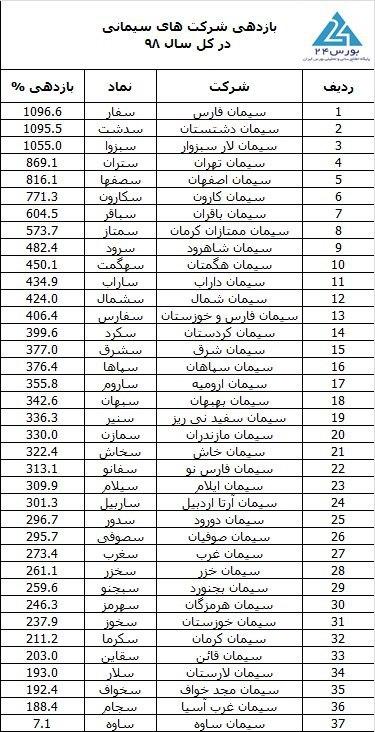 بورس۲۴
پایگاه اطلاع رسانی و تحلیلی بورس ایران
بازدهی شرکت های سیمانی
در کل سال ۹۸
ردیف شرکت نماد بازدهی %
1 سیمان فارس سفار 1096.6
2 سیمان دشتستان سدشت 1095.5
3 سیمان لار سبزوار سبزوا 1055.0
4 سیمان تهران ستران 869.1
5 سیمان اصفهان سصفها 816.1
6 سیمان کارون سکارون 771.3
7 سیمان باقران سباقر 604.5
8 سیمان ممتازان کرمان سمتاز 573.7
9 سیمان شاهرود سرود 482.4
10 سیمان هگمتان سهگمت 450.1
11 سیمان داراب ساراب 434.9
12 سیمان شمال سشمال 424.0
13 سیمان فارس و خوزستان سفارس 406.4
14 سیمان کردستان سکرد 399.6
15 سیمان شرق سشرق 377.0
16 سیمان سپاهان سپاها 376.4
17 سیمان ارومیه ساروم 355.8
18 سیمان بهبهان سبهان 342.6
19 سیمان سفید نی ریز سنیر 336.3
20 سیمان مازندران سمازن 330.0
21 سیمان خاش سخاش 322.4
22 سیمان فارس نو سفانو 313.1
23 سیمان ایلام سیلام 309.9
24 سیمان آرتا اردبیل ساربیل 301.3
25 سیمان دورود سدور 296.7
26 سیمان صوفیان سصوفی 295.7
27 سیمان غرب سغرب 273.4
28 سیمان خزر سخزر 261.1
29 سیمان بجنورد سبجنو 259.6
30 سیمان هرمزگان سهرمز 246.3
31 سیمان خوزستان سخوز 237.9
32 سیمان کرمان سکرما 211.2
33 سیمان قائن سقاین 203.0
34 سیمان لارستان سلار 193.0
35 سیمان مجد خواف سخواف 192.4
36 سیمان غرب آسیا سجام 188.4
37 سیمان ساوه ساوه 7.1